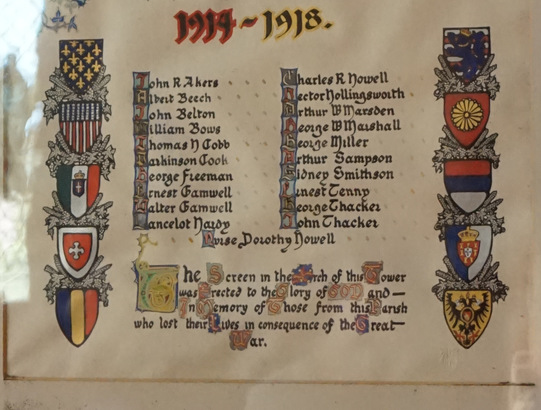 1914 ~ 1918.
John R Akers
Albert Beech
John Belton
William Bows
Thomas H Cobb
Parkinson Cook
George Freeman
Ernest Gamwell
Walter Gamwell
Lancelot Hardy
Charles R Howell
Hector Hollingsworth
Arthur W Marsden
George W Marshall
George Miller
Arthur Sampson
Sidney Smithson
Ernest Tenny
George Thacker
John Thacker
Louise Dorothy Howell
The Screen in the Arch of this Tower
was Erected to the Glory of GOD and —
in Memory of Those from this Parish
who lost their Lives in consequence of the Great
War.